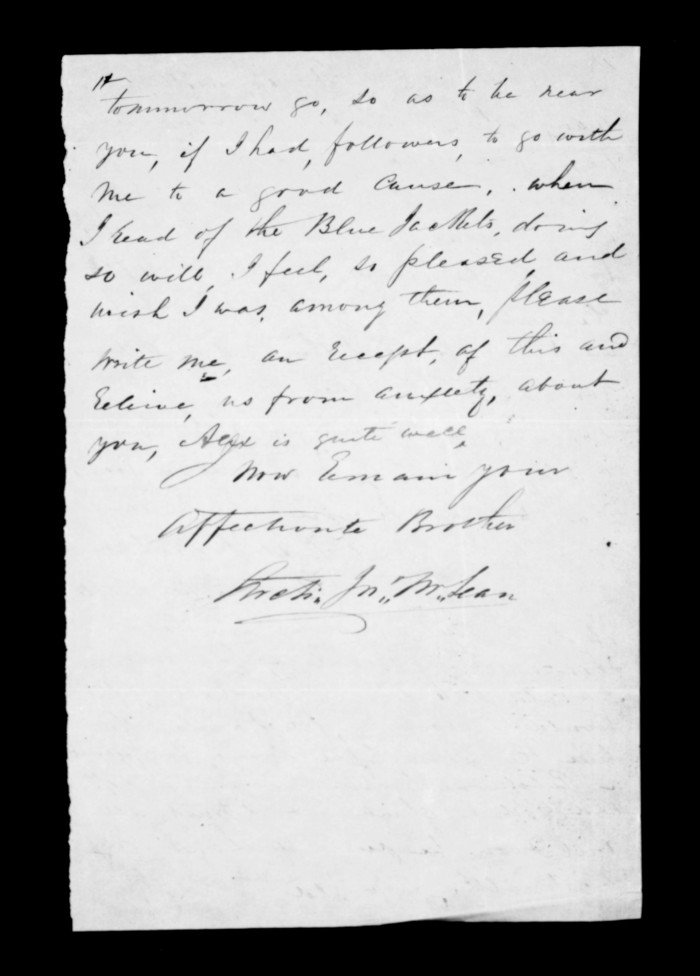 tommorrow go, so as to be near
you, if I had, followers, to go with
me to a good cause, . when
I read of the Blue Jackets, doing
so will, I feel, so pleased, and
wish I was, among them, please
write me, on receept, of this and
relieve, us from anxiety, about
you, Alex is quite well,
Now remain your
Affectionate Brother
Archi,, Jn,, Mc,, Lean